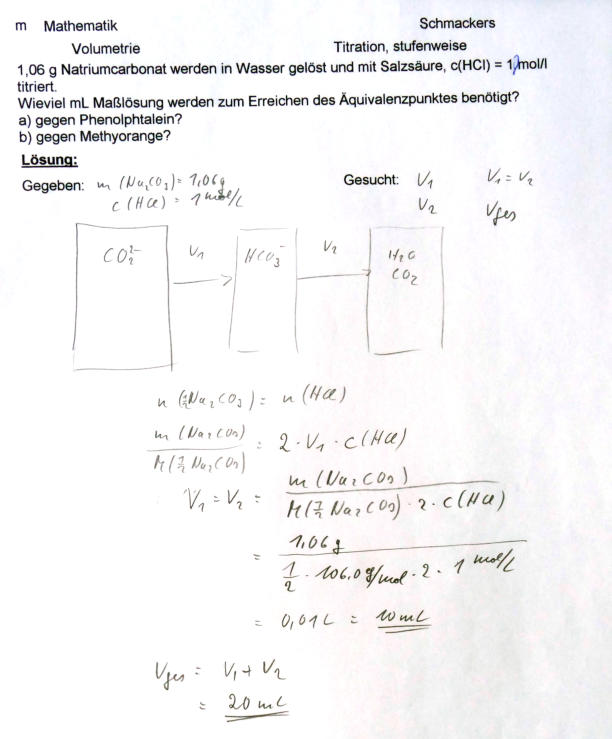 m Mathematik Schmackers
Volumetrie Titration, stufenweise
1,06 g Natriumcarbonat werden in Wasser gelöst und mit Salzsäure, c(HCl) = 1,mol/l
titriert.
Wieviel mL Maßlösung werden zum Erreichen des Äquivalenzpunktes benötigt?
a) gegen Phenolphtalein?
b) gegen Methyorange?
Lösung:
Gegeben: m (Na₂CO₃) = 1,06g Gesucht: V₁ V₁ = V₂
c (HCl) = 1 mol/L V₂ Vges
CO₂²⁻ V₁ HCO₃⁻ V₂ H₂O
CO₂
n (½Na₂CO₃) = n (HCl)
m (Na₂CO₃) / M(½ Na₂CO₃) = 2 · V₁ · c (HCl)
V₁ = V₂ = m (Na₂CO₃) / M(½ Na₂CO₃) · 2 · c (HCl)
= 1,06 g / ½ · 106,0 g/mol · 2 · 1 mol/L
= 0,01 L = 10 mL
Vges = V₁ + V₂
= 20 mL